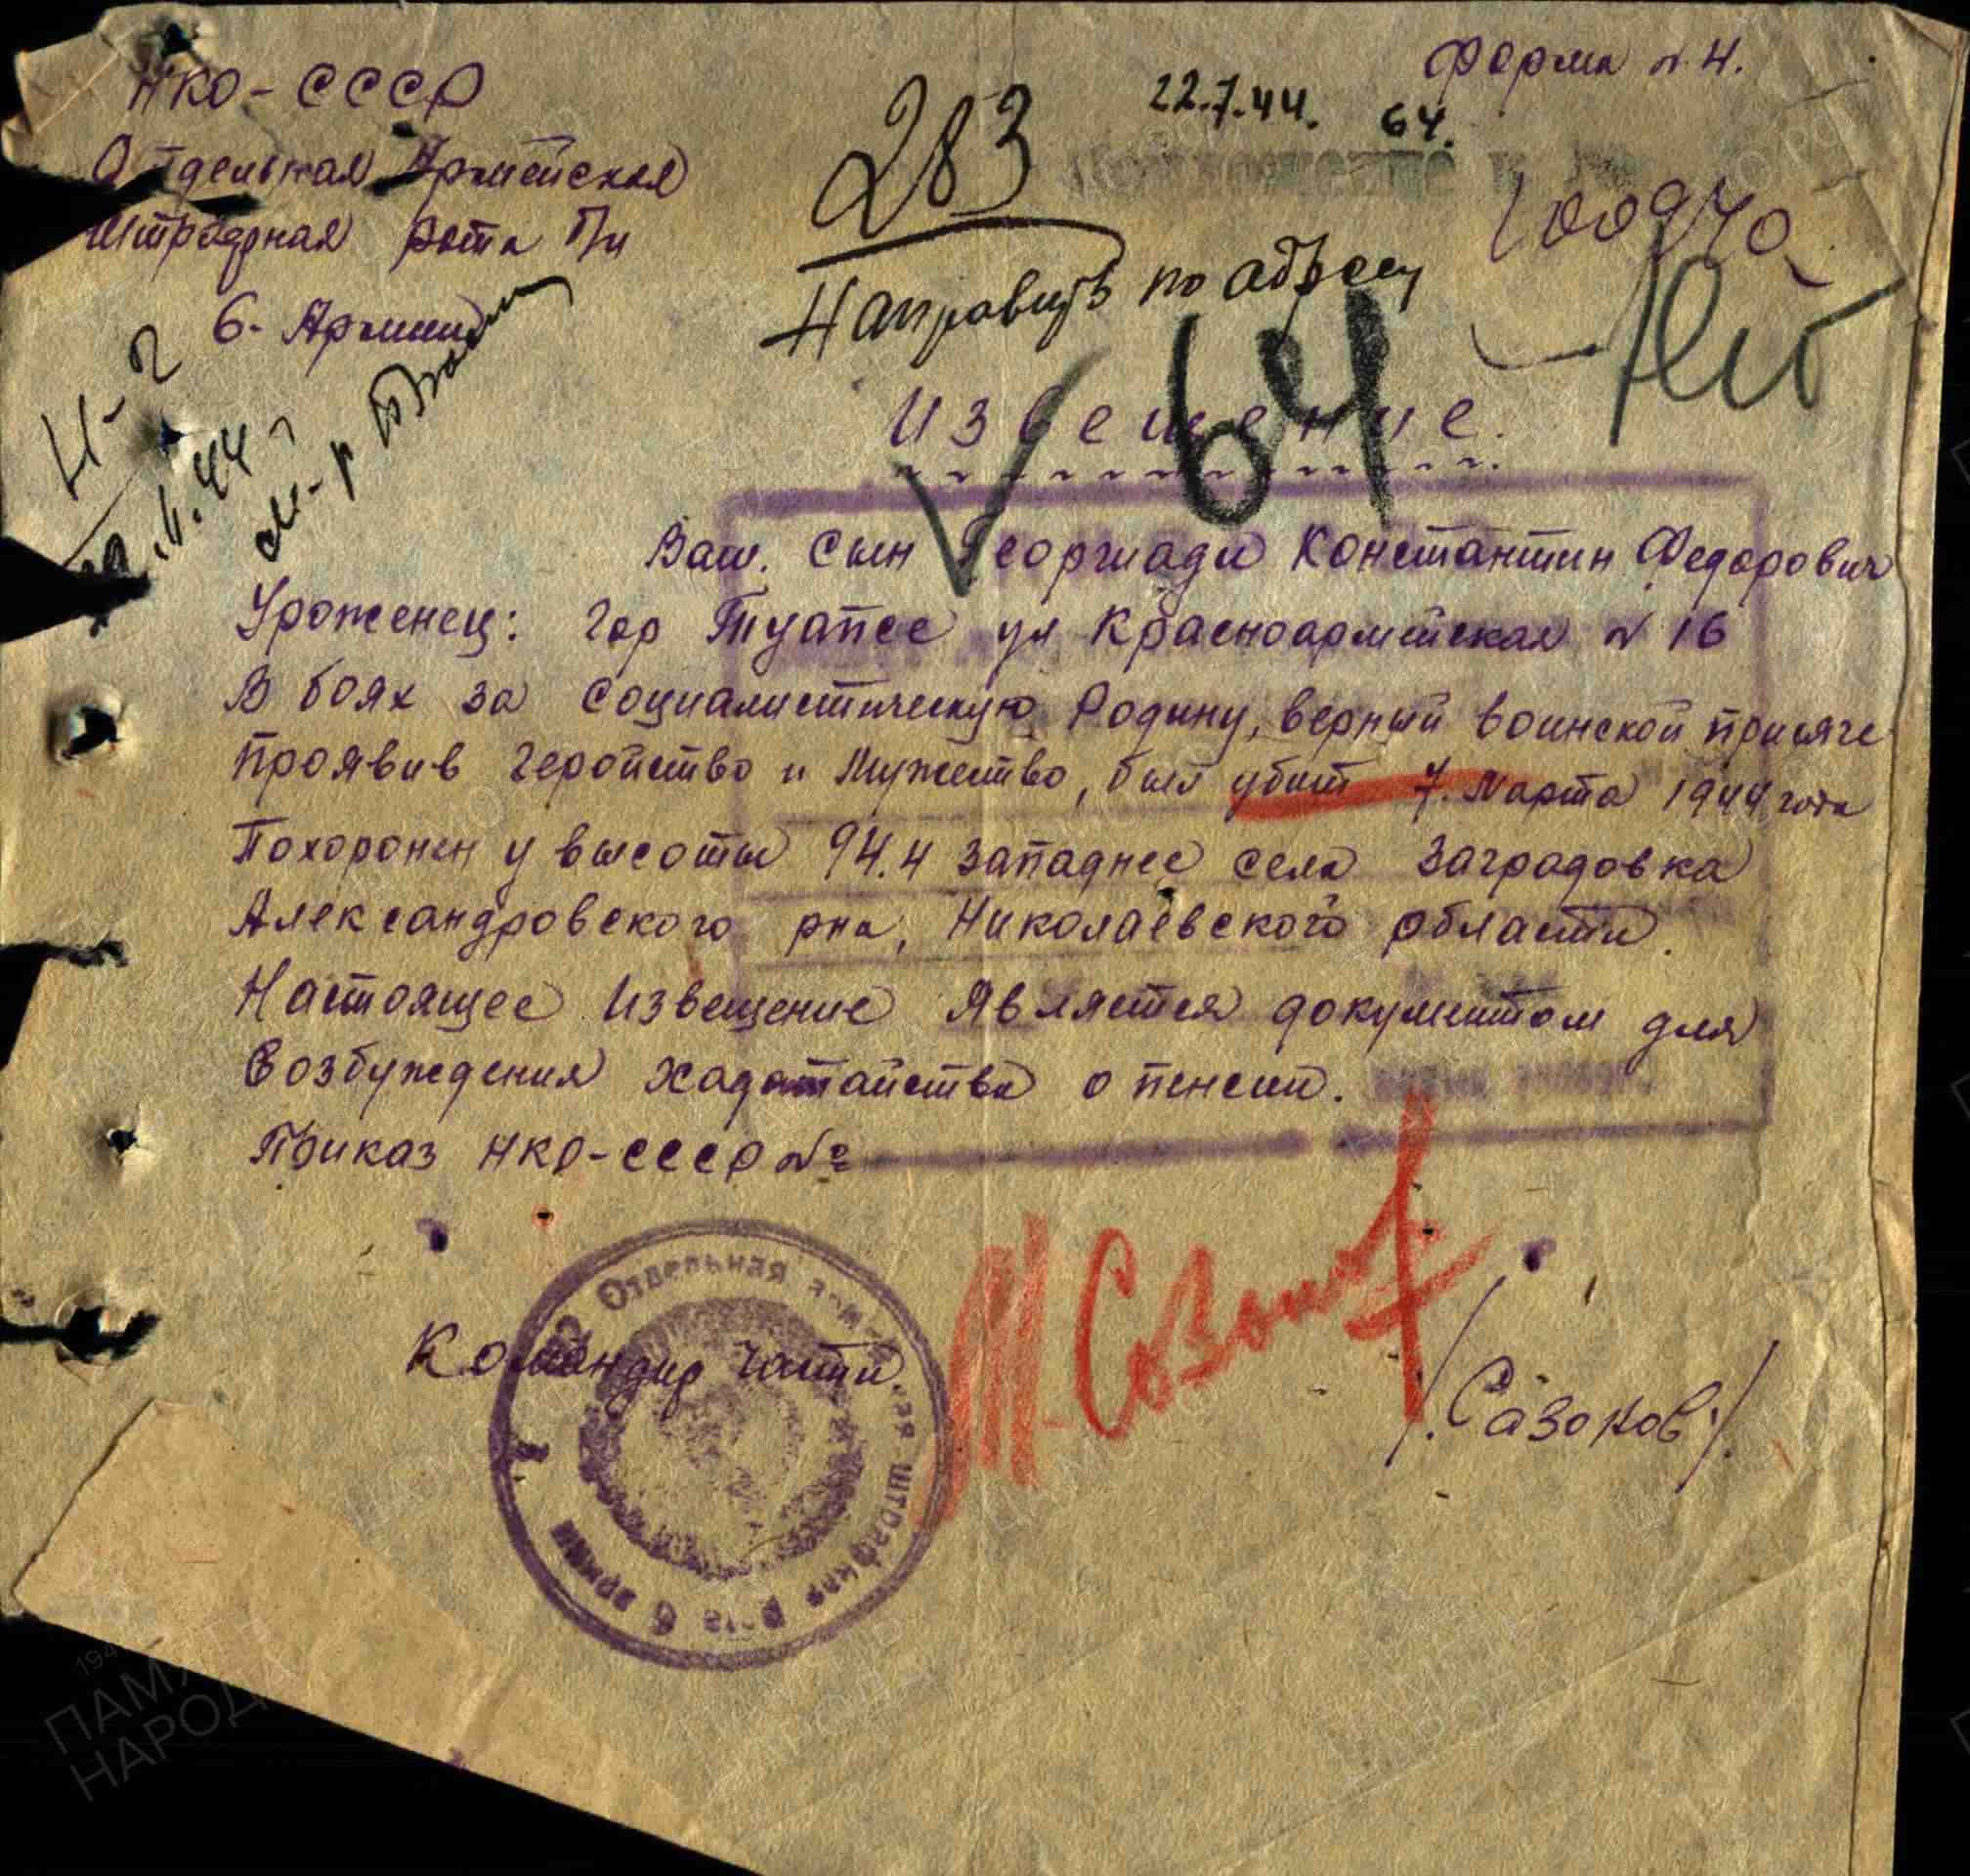 НКО-СССР
Форма № 4.
22.7.44. 64.
Отдельная Армейская
283
Штрафная рота П/и
100970
6. Армии
Направить по адресу
64
Извещение.
Ваш. сын Георгиади Константин Федорович
Уроженец: гор Туапсе ул Красноармейская № 16
В боях за социалистическую Родину, верный воинской присяге
проявив геройство и мужество, был убит 7. марта 1944 года
Похоронен у высоты 94.4 западнее села Заградовка
Александровского рна, Николаевского области.
Настоящее извещение является документом для
возбуждения ходатайства о пенсии.
Приказ НКО-СССР №
Командир части.
/.Сазонов./
Отдельная армейская штрафная рота 6 армии
ПАМЯТЬ
НАРОДА